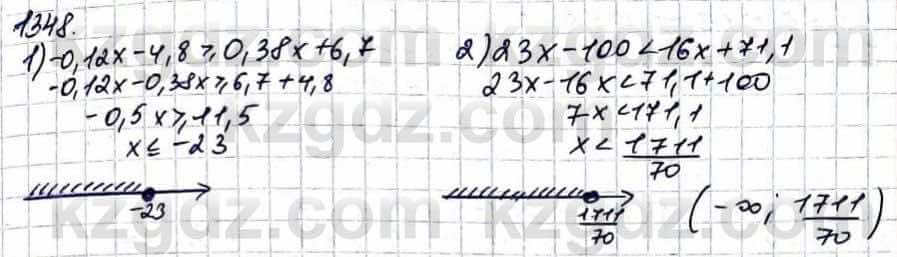 1348.
1) -0,12x - 4,8 ⩾ 0,38x + 6,7
-0,12x - 0,38x ⩾ 6,7 + 4,8
-0,5x ⩾ 11,5
x ≤ -23
-23
2) 23x - 100 < 16x + 71,1
23x - 16x < 71,1 + 100
7x < 171,1
x < 1711/70
1711/70
(-∞; 1711/70)
kzgdz.com